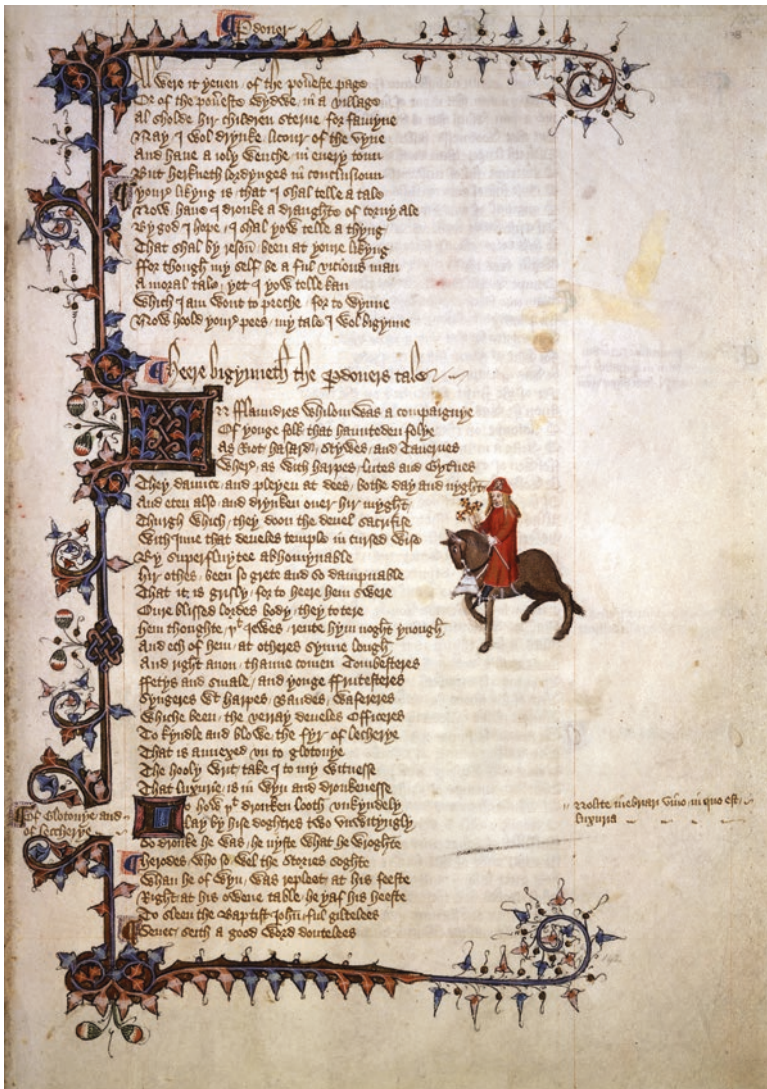 ꝑdoner
Al were it yeuen of the poũeste page
Or of the poũeste wydwe in a village
Al sholde hir children sterue for famyne
Nay I wol drynke licour of the vyne
And haue a ioly wenche in euery toun
But herkneth lordynges in conclusioun
Youre likyng is that I shal telle a tale
Now haue I dronke a draughte of corny ale
By god I hope I shal yow telle a thyng
That shal by resoun been at youre likyng
ffor though my self be a ful vicious man
A moral tale yet I yow telle kan
Which I am wont to preche for to wynne
Now hoold youre pees my tale I wol bigynne
Heere bigynneth the ꝑdoners tale
IN fflaundres whilom was a compaignye
Of yonge folk that haunteden folye
As riot hasard stywes and Tauernes
Wher as with harpes lutes and Gyternes
They daunce and pleyen at dees bothe day and nyght
And eten also and drynken ouer hir myght
Thurgh which they doon the deuel sacrifise
With Inne that deueles temple in cursed wise
By superfluytee abhomynable
Hir othes been so grete and so dampnable
That it is grisly for to heere hem swere
Oure blissed lordes body they to tere
Hem thoughte yt Iewes rente hym noght ynough
And ech of hem at otheres synne lough
And right anon thanne comen Tombesteres
ffetys and smale and yonge ffrutesteres
Syngeres wt harpes Baudes wafereres
Whiche been the verray deueles Officeres
To kyndle and blowe the fyr of lecherye
That is annexed vn to glotonye
The hooly writ take I to my witnesse
That luxurie is in wyn and dronkenesse
Of Glotonye and of leccherye
Lo how yt dronken looth vnkyndely
Lay by hise doghtres two vnwityngly
Nolite inebriari vino in quo est
luxuria
So dronke he was he nyste what he wroghte
Herodes who so wel the stories soghte
Whan he of wyn was repleet at his feeste
Right at his owene table he yaf his heeste
To sleen the Baptist Iohn ful giltelees
Senec seith a good word doutelees